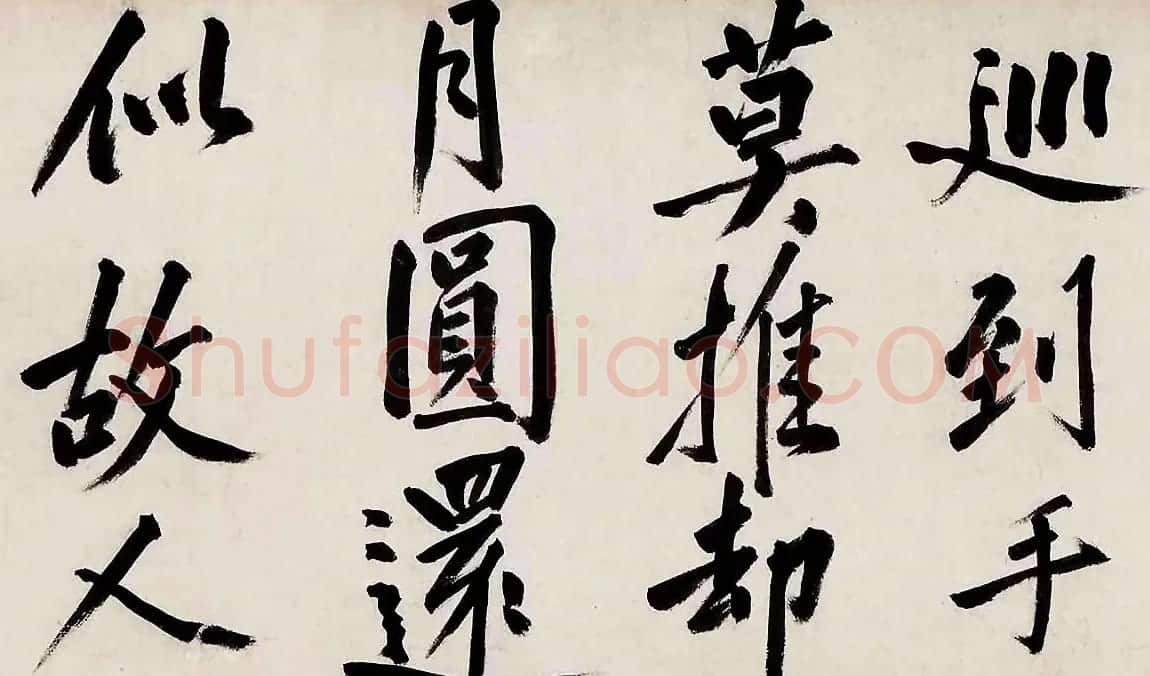 巡到手
莫推却
月圓還
似故人
Shufaziliao.COM